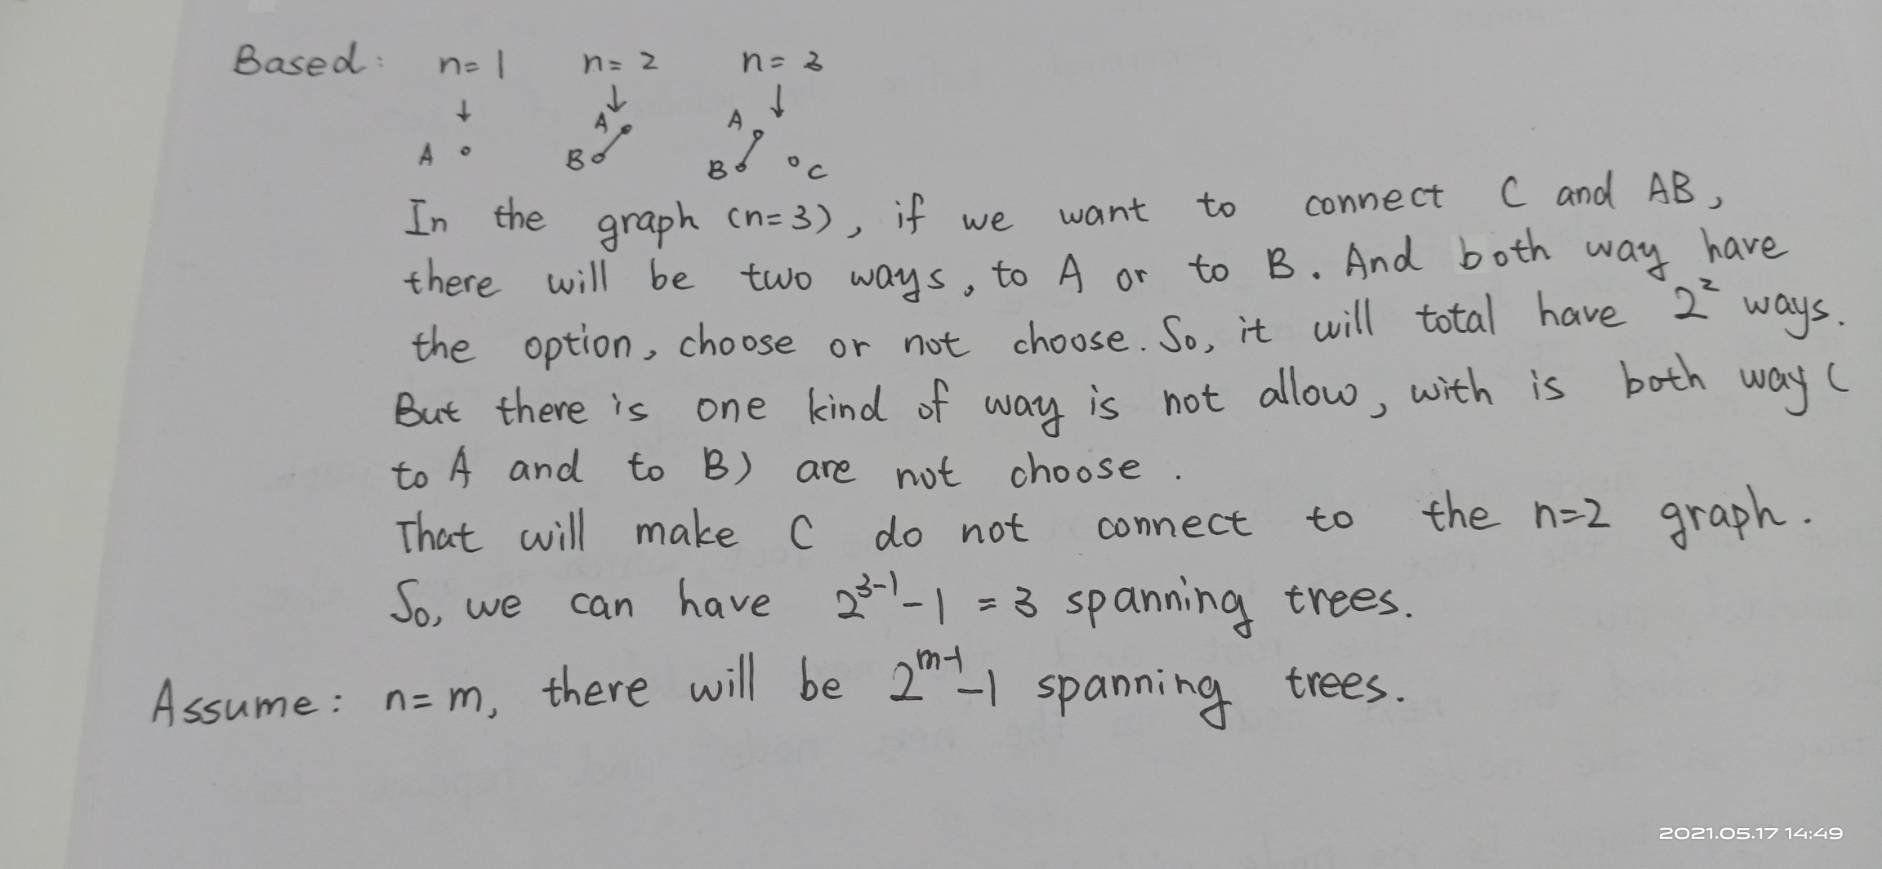 Based: n=1 n=2 n=3
↓ ↓ ↓
A A A
B B C
In the graph (n=3), if we want to connect C and AB,
there will be two ways, to A or to B. And both way have
the option, choose or not choose. So, it will total have 2² ways.
But there is one kind of way is not allow, with is both way (
to A and to B) are not choose.
That will make C do not connect to the n=2 graph.
So, we can have 2³⁻¹-1 = 3 spanning trees.
Assume: n=m, there will be 2ᵐ⁻¹-1 spanning trees.
2021.05.17 14:49